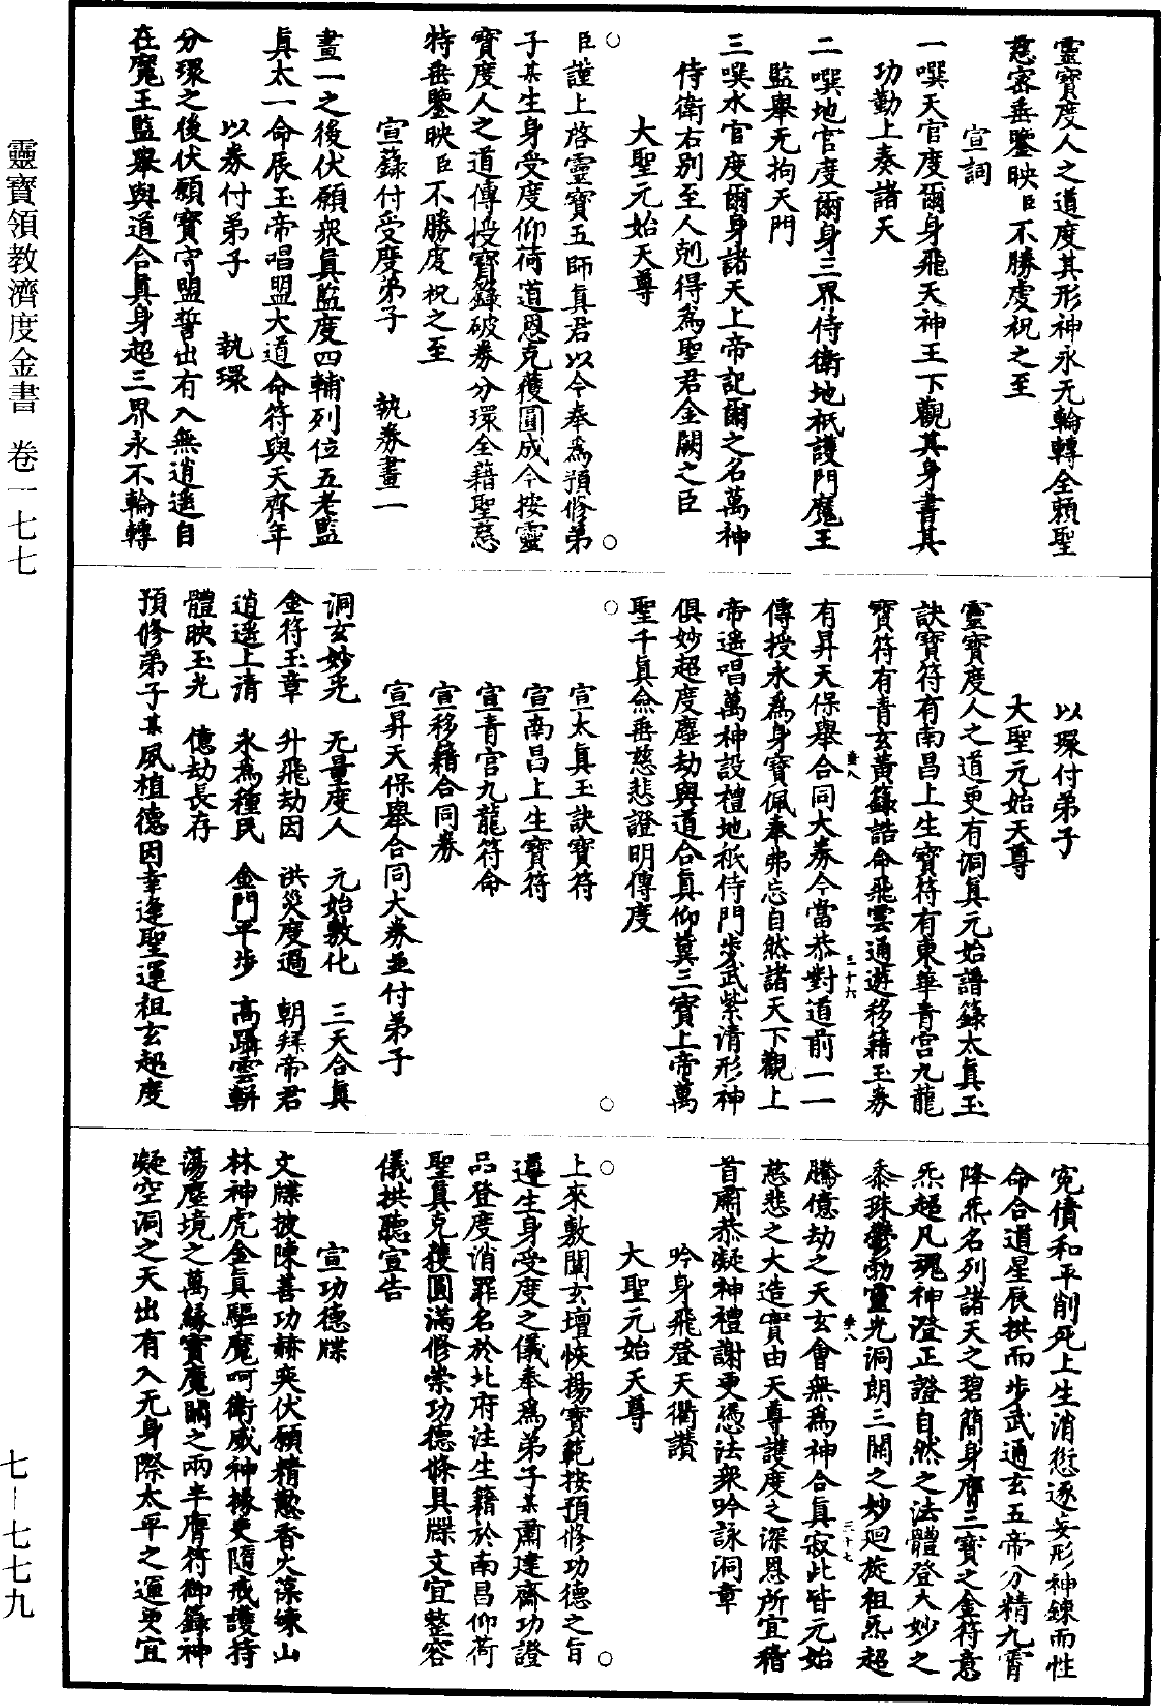 靈寶度人之道度其形神永无輪轉全賴聖
慈密垂鑒映臣不勝虔祝之至
宣詞
一噀天官度爾身飛天神王下觀其身書其
功勤上奏諸天
二噀地官度爾身三界侍衛地祇護門魔王
監舉无拘天門
三噀水官度爾身諸天上帝記爾之名萬神
侍衛右別至人剋得為聖君金闕之臣
大聖元始天尊
○　○
臣謹上啓靈寶五師真君以今奉為預修弟
子某生身受度仰荷道恩克獲圓成今按靈
寶度人之道傳授寶籙破券分環全藉聖慈
特垂鑒映臣不勝虔祝之至
宣籙付受度弟子　執券畫一
畫一之後伏願衆真監度四輔列位五老監
真太一命辰玉帝唱盟大道命符與天齊年
以券付弟子　執環
分環之後伏願寶守盟誓出有入無逍遙自
在魔王監舉與道合真身超三界永不輪轉
以環付弟子
大聖元始天尊
靈寶度人之道更有洞真元始譜籙太真玉
訣寶符有南昌上生寶符有東華青宮九龍
寶符有青玄黃籙誥命飛雲通遊移籍玉券
有昇天保舉合同大券今當恭對道前一一
傳授永為身寶佩奉弗忘自然諸天下觀上
帝遙唱萬神設禮地祇侍門步武紫清形神
俱妙超度塵劫與道合真仰冀三寶上帝萬
聖千真僉垂慈悲證明傳度
○　○
宣太真玉訣寶符
宣南昌上生寶符
宣青宮九龍符命
宣移籍合同券
宣昇天保舉合同大券並付弟子
洞玄妙光　无量度人　元始敷化　三天合真
金符玉章　升飛劫因　洪災度過　朝拜帝君
逍遙上清　永為種民　金門平步　高躡雲軿
體映玉光　億劫長存
預修弟子某夙植德因幸逢聖運祖玄超度
冤債和平削死上生消愆逐妄形神鍊而性
命合道星辰拱而步武通玄五帝分精九霄
降炁名列諸天之碧簡身膺三寶之金符意
炁超凡魂神澄正證自然之法體登大妙之
黍珠鬱勃靈光洞朗三關之妙廻旋祖炁超
騰億劫之天玄會無為神合真寂此皆元始
慈悲之大造實由天尊護度之深恩所宜稽
首肅恭凝神禮謝更憑法衆吟詠洞章
吟身飛登天衢讚
大聖元始天尊
○　○
上來敷闡玄壇恢揚寶範按預修功德之旨
遵生身受度之儀奉為弟子某肅建齋功證
品登度消罪名於北府注生籍於南昌仰荷
聖真克獲圓滿修崇功德條具牒文宜整容
儀拱聽宣告
宣功德牒
文牒披陳善功赫奕伏願精懃香火藻練山
林神虎金真驅魔呵衛威神掾吏隨戒護持
蕩塵境之萬緣賓魔闕之兩半膺符御籙神
凝空洞之天出有入无身際太平之運更宜
靈寶領教濟度金書　卷一七七
七—七七九